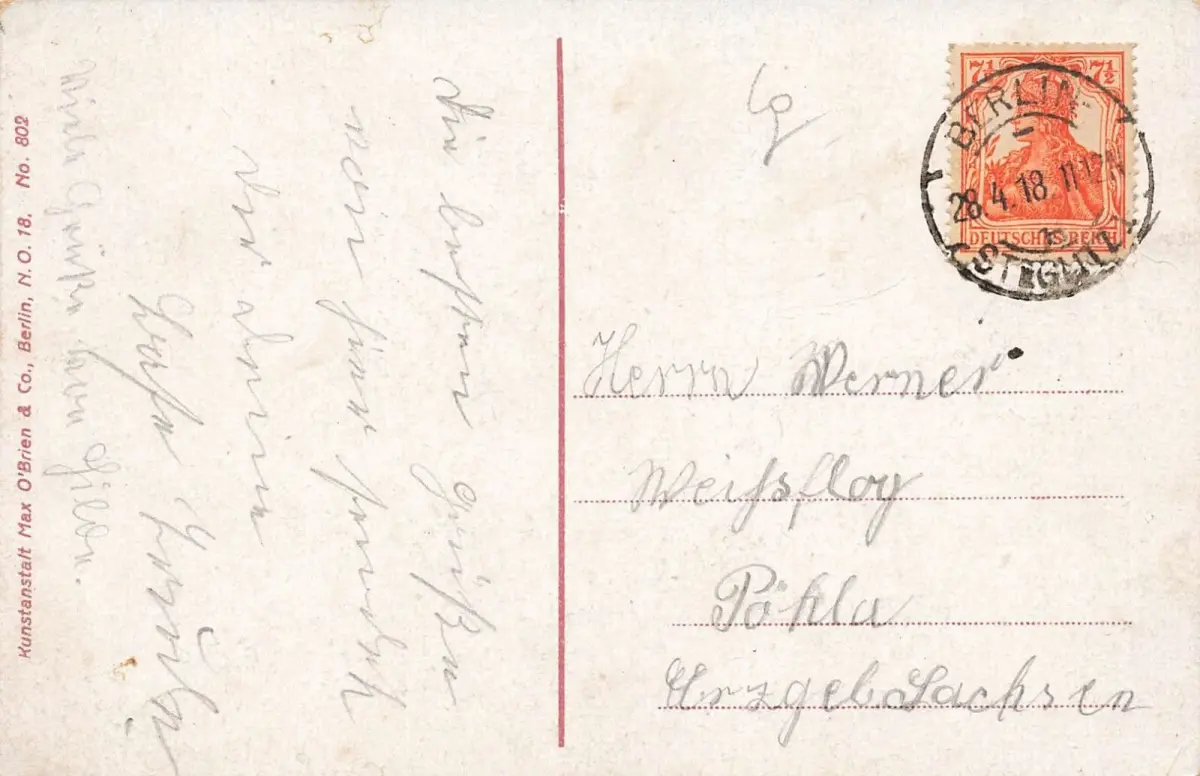 Kunstanstalt Max O'Brien & Co., Berlin, N. O. 18. No. 802
Die besten Grüße
von hier sendet
dir deine
Viele Grüße von
7½ 7½
DEUTSCHES REICH
BERLIN
28.4.18. 11-12
Herrn Werner
Weihsflog
Pöhla
Erzgeb. Sachsen